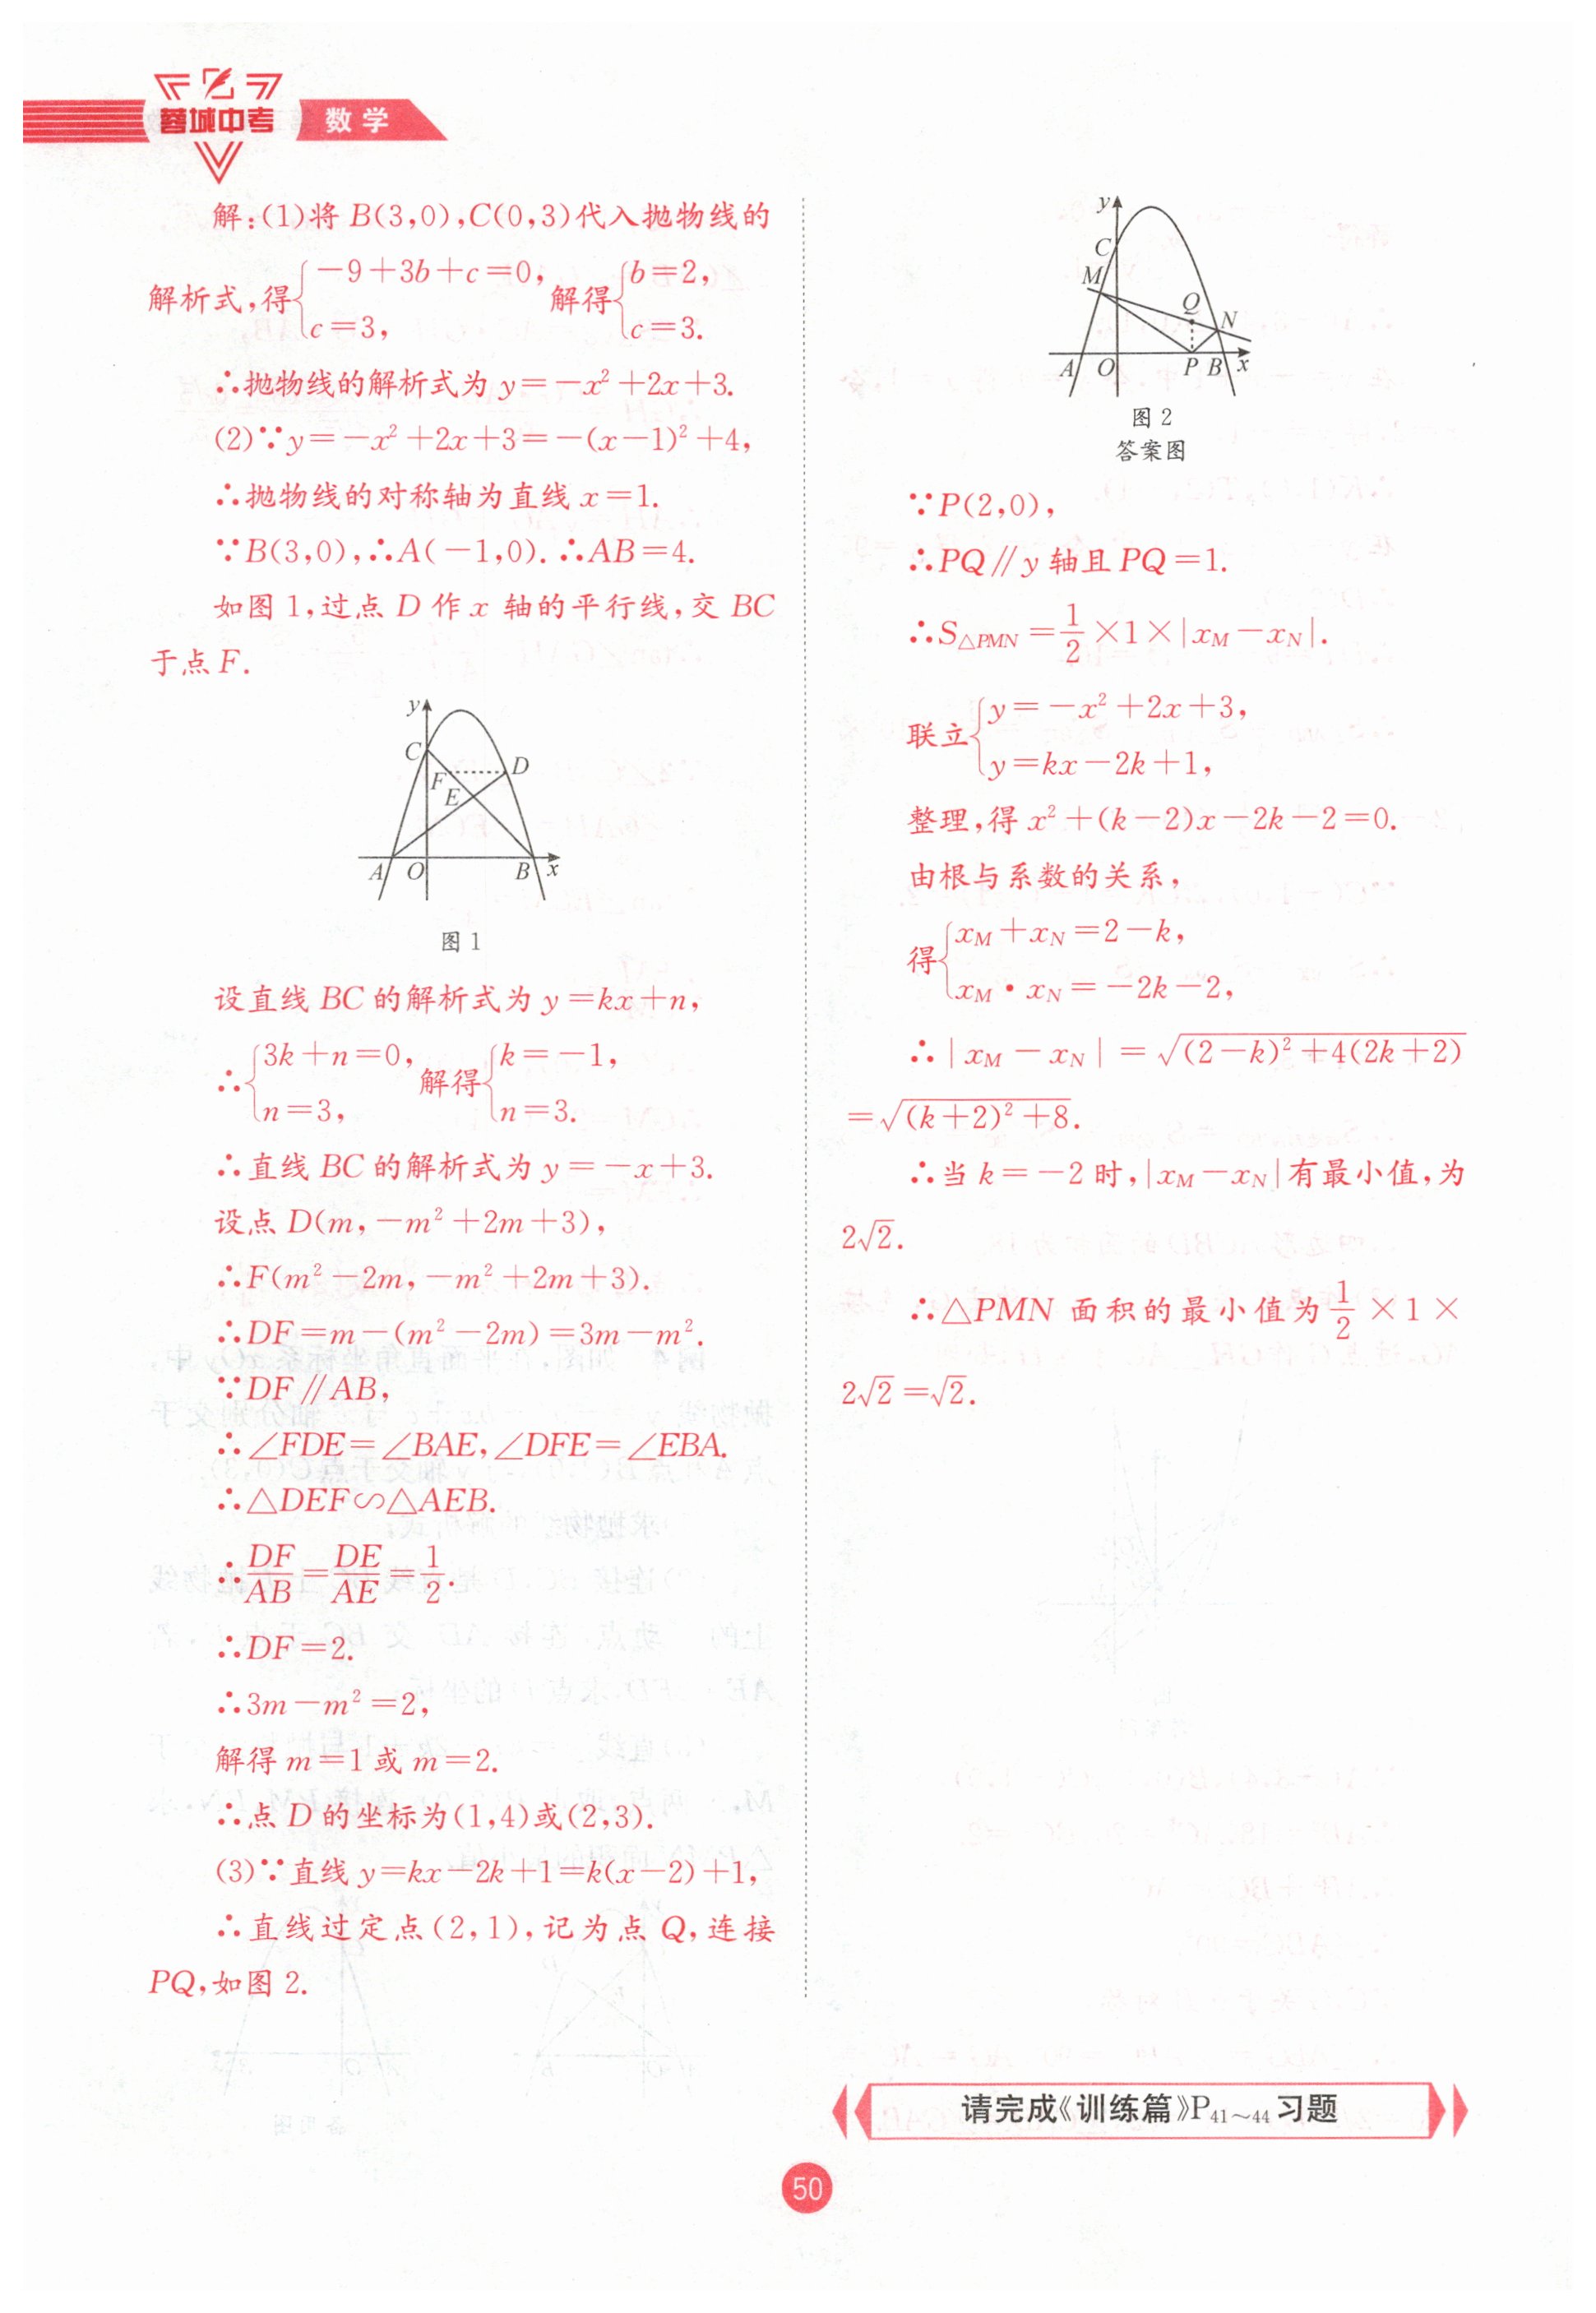 蓉城中考 数学
解:(1)将 B(3,0),C(0,3)代入抛物线的
解析式,得{−9+3b+c=0, c=3, 解得{b=2, c=3.
∴抛物线的解析式为 y=−x²+2x+3.
(2)∵y=−x²+2x+3=−(x−1)²+4,
∴抛物线的对称轴为直线 x=1.
∵B(3,0),∴A(−1,0).∴AB=4.
如图 1,过点 D 作 x 轴的平行线,交 BC
于点 F.
y
C
D
F
E
A O B x
图 1
设直线 BC 的解析式为 y=kx+n,
∴{3k+n=0, n=3, 解得{k=−1, n=3.
∴直线 BC 的解析式为 y=−x+3.
设点 D(m,−m²+2m+3),
∴F(m²−2m,−m²+2m+3).
∴DF=m−(m²−2m)=3m−m².
∵DF∥AB,
∴∠FDE=∠BAE,∠DFE=∠EBA.
∴△DEF∽△AEB.
∴DF/AB=DE/AE=1/2.
∴DF=2.
∴3m−m²=2,
解得 m=1 或 m=2.
∴点 D 的坐标为(1,4)或(2,3).
(3)∵直线 y=kx−2k+1=k(x−2)+1,
∴直线过定点(2,1),记为点 Q,连接
PQ,如图 2.
y
C
M
Q
N
A O P B x
图 2
答案图
∵P(2,0),
∴PQ∥y 轴且 PQ=1.
∴S△PMN=1/2×1×|xM−xN|.
联立{y=−x²+2x+3, y=kx−2k+1,
整理,得 x²+(k−2)x−2k−2=0.
由根与系数的关系,
得{xM+xN=2−k, xM·xN=−2k−2,
∴|xM−xN|=√((2−k)²+4(2k+2))
=√((k+2)²+8).
∴当 k=−2 时,|xM−xN|有最小值,为
2√2.
∴△PMN 面积的最小值为1/2×1×
2√2=√2.
请完成《训练篇》P41～44习题
50